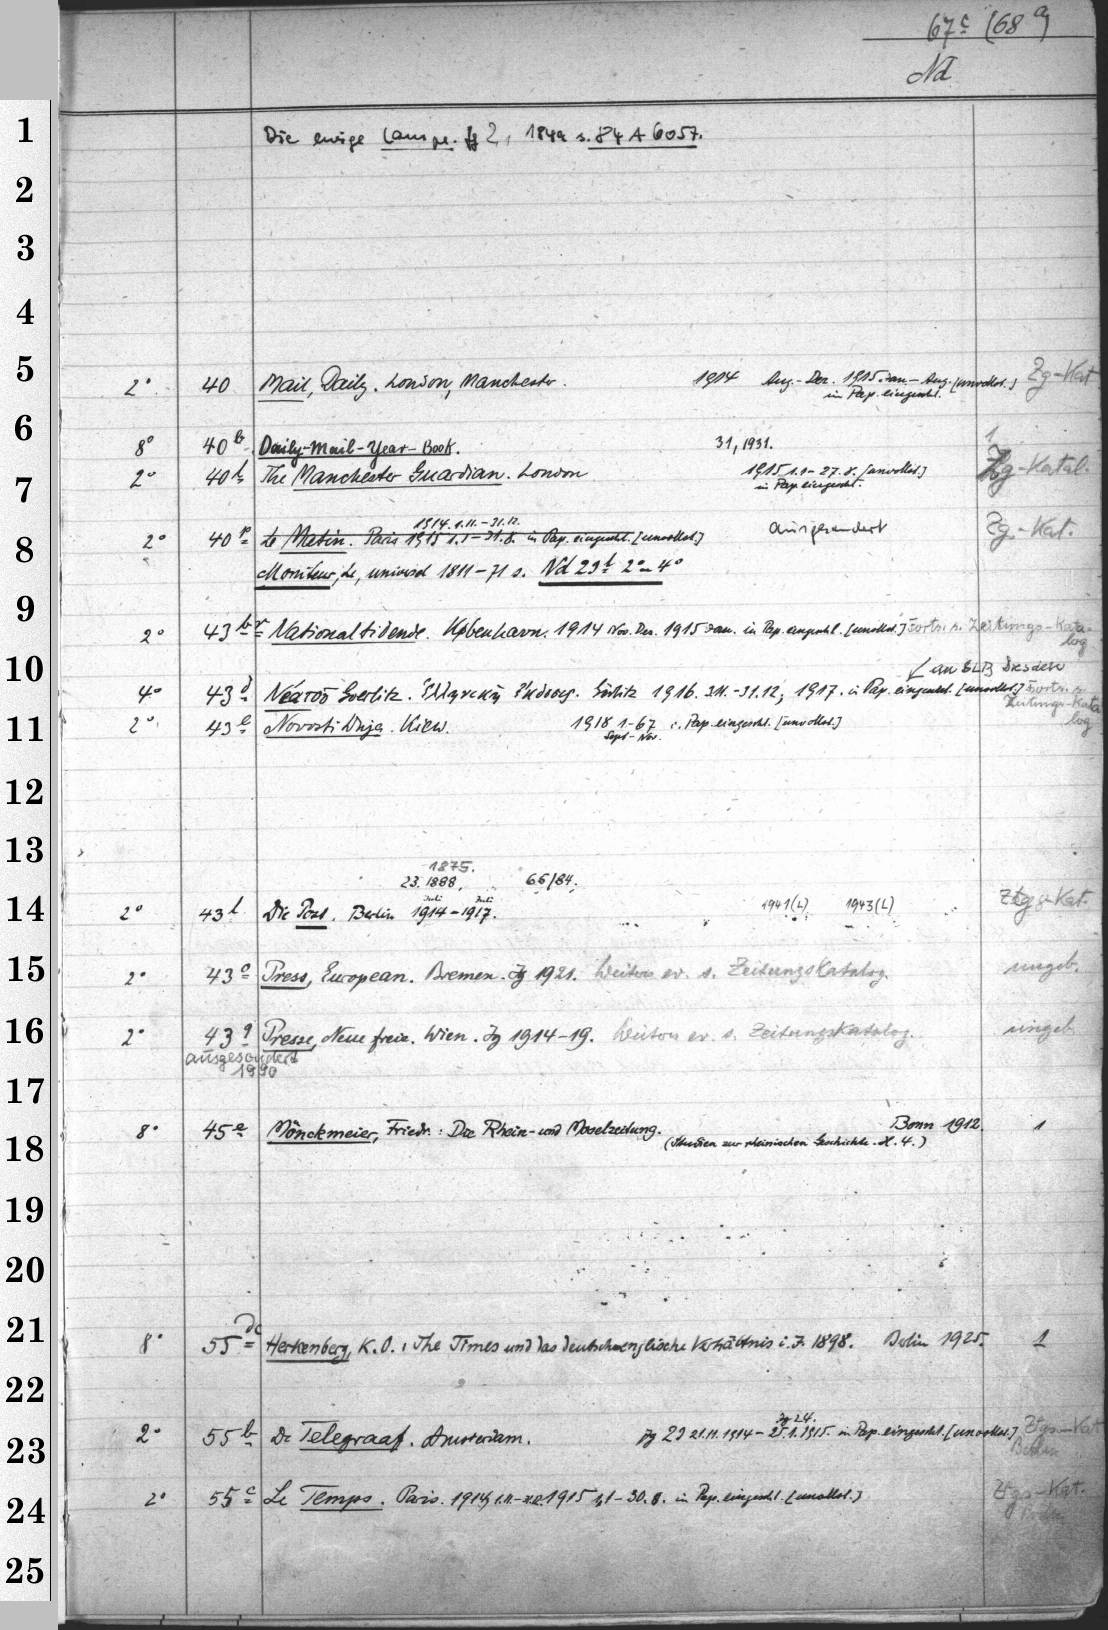 67c (68a)
Nd
1
Die ewige Lampe. Jg 2, 1849 s. 84 A 6057.
2
3
4
5
2° 40 Mail, Daily. London, Manchester. 1914 Aug.-Dez. 1915 Jan.-Aug. [unvollst.] Zg-Kat
in Pap. eingeschl.
6
8° 40b Daily-Mail-Year-Book. 31, 1931. 1
7
2° 40h The Manchester Guardian. London 1915 1.1-27.8. [unvollst.] Zg-Katal.
in Pap. eingeschl.
1914. 1.11.-31.12.
8
2° 40 Le Matin. Paris 1915 1.1-31.8. in Pap. eingeschl. [unvollst.] ausgesondert Zg.-Kat.
Moniteur, Le, universel 1811-71 s. Nd 29t 2° u 4°
9
2° 43 Nationaltidende. København. 1914 Nov. Dez. 1915 Jan. in Pap. eingeschl. [unvollst.] Forts. s. Zeitungs-Kata-
log
10
an SLB Dresden
4° 43d Goerlitz. Görlitz 1916. -31.12; 1917. in Pap. eingeschl. [unvollst.] Forts. s.
Zeitungs-Kata
log
11
2° 43e Novosti Dnja. Kiew. 1918 1-67 i. Pap. eingeschl. [unvollst.]
Sept-Nov.
12
13
1875.
23. 1888, 66/84.
Juli Juli
14
2° 43l Die Post. Berlin 1914-1917. 1941(L) 1943(L) Ztg-Kat.
15
2° 43o Press, European. Bremen. Jg 1921. Weiteres ev. s. Zeitungskatalog. ungeb.
16
2° 43q Presse, Neue freie. Wien. Jg 1914-19. Weiteres ev. s. Zeitungskatalog. ungeb
ausgesondert
1990
17
18
8° 45e Mönckmeier, Friedr.: Die Rhein- und Moselzeitung. Bonn 1912. 1
(Studien zur rheinischen Geschichte. H. 4.)
19
20
21
8° 55 Herkenberg, K. O.: The Times und das deutsch-englische Verhältnis i. J. 1898. Berlin 1925. 1
22
Jg 24.
23
2° 55b De Telegraaf. Amsterdam. Jg 23 21.11.1914-25.1.1915. in Pap. eingeschl. [unvollst.] Ztgs-Kat
Berlin
24
2° 55c Le Temps. Paris. 1914 1915 -30.8. in Pap. eingeschl. [unvollst.] Ztgs-Kat.
25